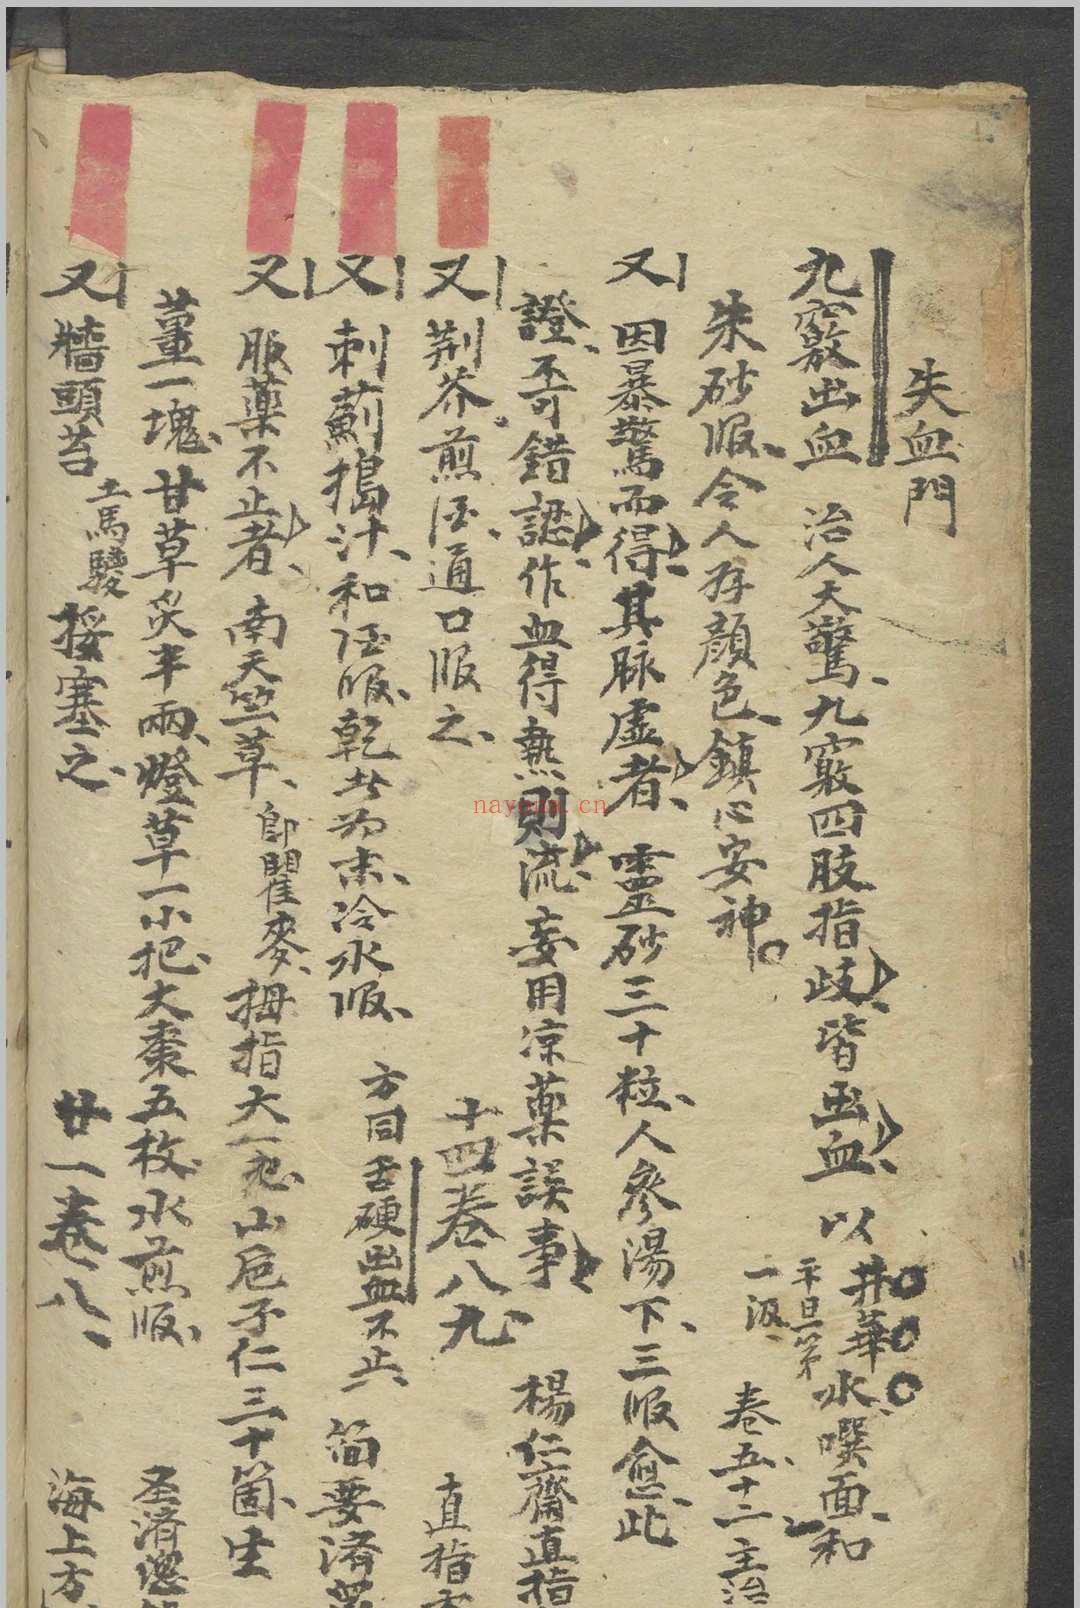 失血門
九竅出血 治人大驚、九竅四肢指歧、皆出血、以井華水、平旦第一汲、噀面、和
朱砂服、令人存顔色、鎮心安神。卷五十二、主治
又 因暴驚而得、其脉虚者、靈砂三十粒、人參湯下、三服愈、此
證、不可錯認作血得熱則流、妄用凉藥誤事、楊仁齋直指
又 荆芥煎酒、通口服之、十四卷八九、直指方
又 刺薊搗汁、和酒服、乾者为末、冷水服、方同舌硬出血不止、簡要済
又 服藥不止者、南天竺草、即瞿麥、拇指大一把、山卮子仁三十箇、生
薑一塊、甘草炙半兩、燈草一小把、大棗五枚、水煎服、圣済總
又 牆頭苔 土馬騣 挼塞之、廿一卷八、海上方
nayona.cn